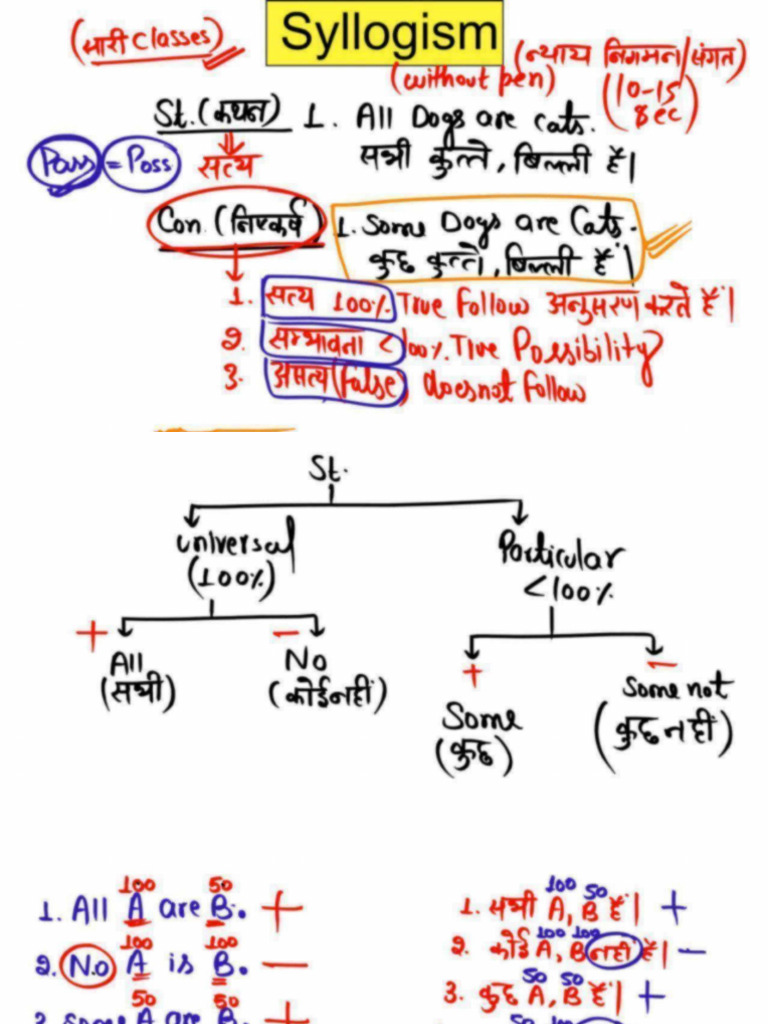 (सारी classes)
Syllogism
(न्याय निगमन/संगत)
(without pen)
(10-15 sec)
St. (कथन) 1. All Dogs are cats.
Pass = Poss
सत्य
सभी कुत्ते, बिल्ली हैं।
Con. (निष्कर्ष) 1. Some Dogs are Cats.
कुछ कुत्ते, बिल्ली हैं।
1. सत्य 100% True follow अनुसरण करते हैं।
2. सम्भावना <100% True Possibility
3. असत्य (false) does not follow
St.
universal
(100%)
Particular
<100%
+ −
All No
(सभी) (कोई नहीं)
+ −
Some Some not
(कुछ) (कुछ नहीं)
100 50
1. All A are B. +
100 100
2. No A is B. −
50 50
3. Some A are B. +
100 50
1. सभी A, B हैं। +
100 100
2. कोई A, B नहीं हैं। −
50 50
3. कुछ A, B हैं। +
50 100